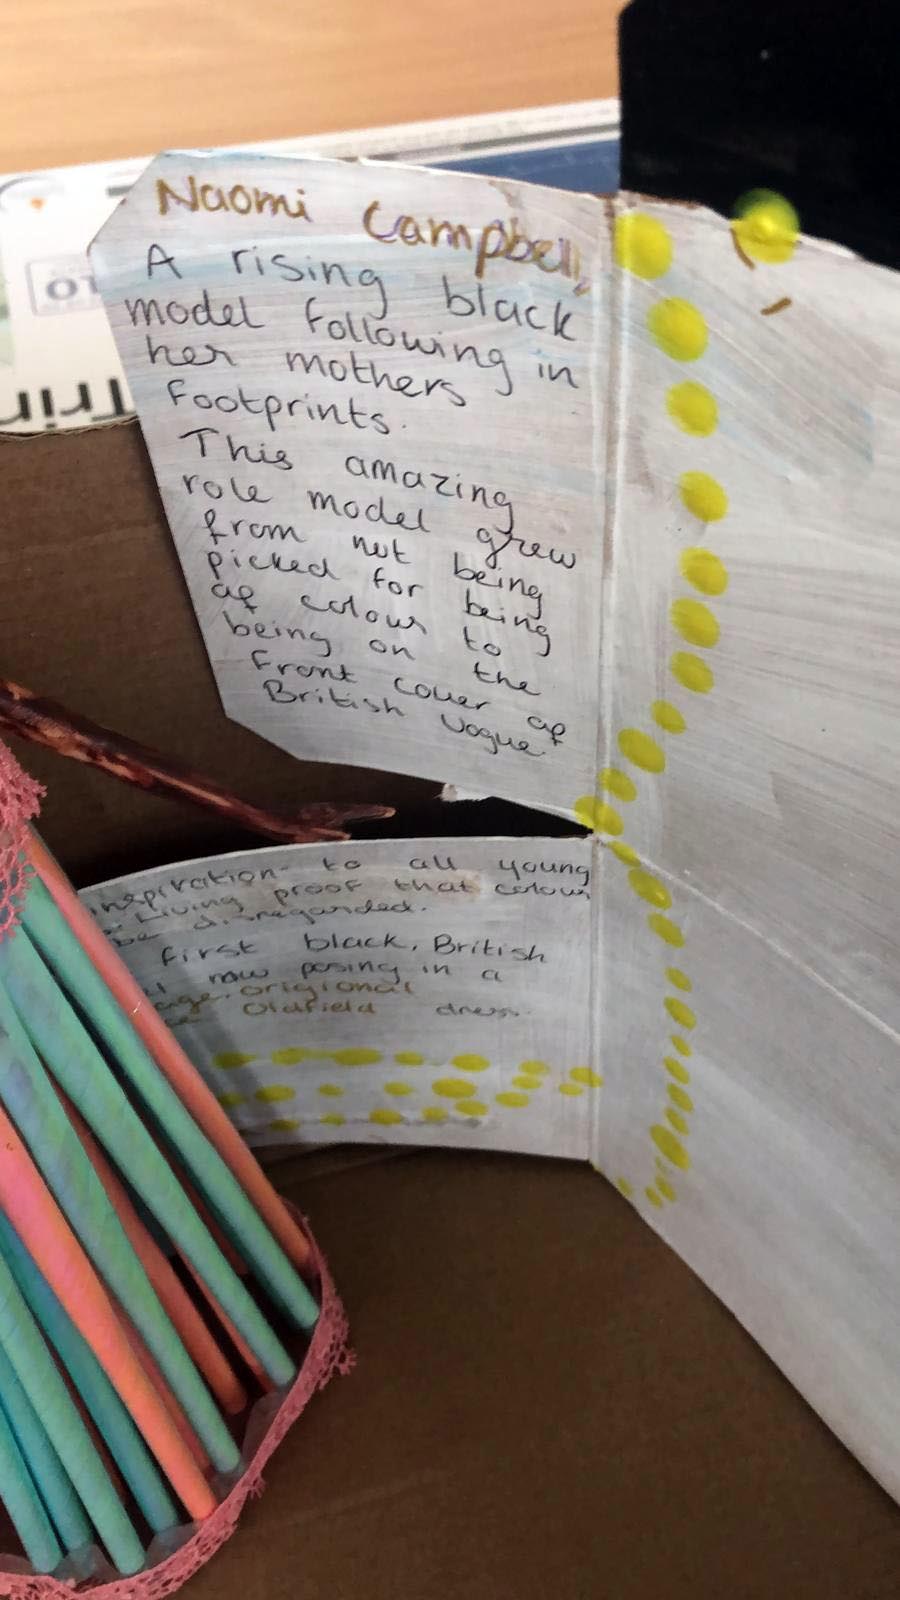 Naomi Campbell
A rising black
model following in
her mothers
footprints.
This amazing
role model grew
from not being
picked for being
of colour to
being on the
front cover of
British Vogue.
inspiration to all young
Living proof that colour
be disregarded.
first black, British
now posing in a
origional
Oldfield dress.